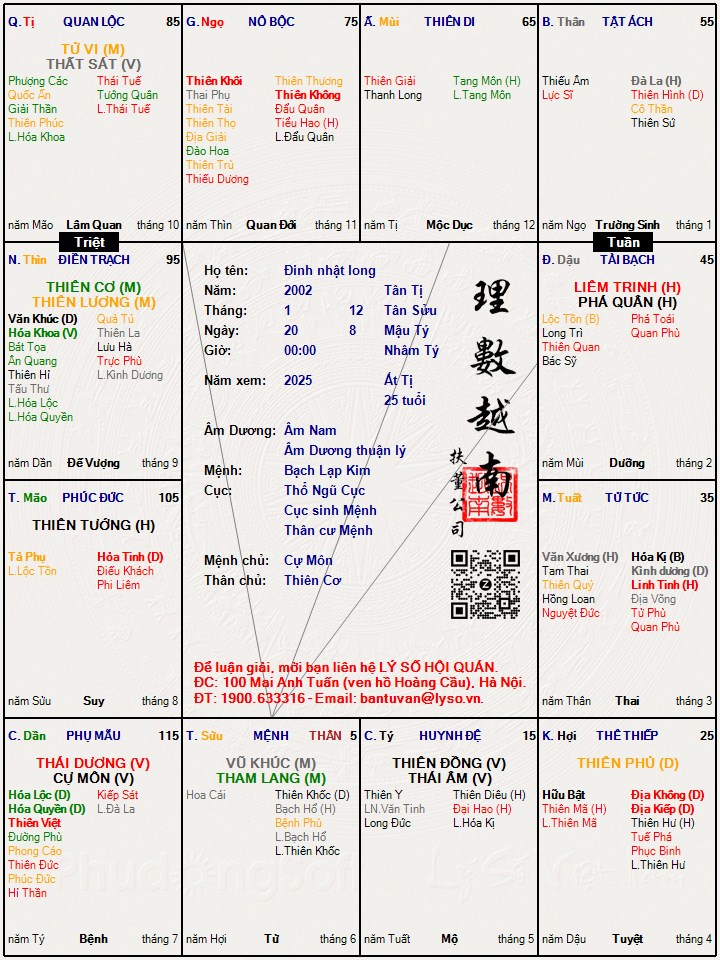 Q. Tị QUAN LỘC 85
TỬ VI (M)
THẤT SÁT (V)
Phượng Các Thái Tuế
Quốc Ấn Tướng Quân
Giải Thần L.Thái Tuế
Thiên Phúc
L.Hóa Khoa
năm Mão Lâm Quan tháng 10
G. Ngọ NÔ BỘC 75
Thiên Khôi Thiên Thương
Thai Phụ Thiên Không
Thiên Tài Đẩu Quân
Thiên Thọ Tiểu Hao (H)
Địa Giải L.Đẩu Quân
Đào Hoa
Thiên Trù
Thiếu Dương
năm Thìn Quan Đới tháng 11
Ấ. Mùi THIÊN DI 65
Thiên Giải Tang Môn (H)
Thanh Long L.Tang Môn
năm Tị Mộc Dục tháng 12
B. Thân TẬT ÁCH 55
Thiếu Âm Đà La (H)
Lực Sĩ Thiên Hình (D)
Cô Thần
Thiên Sứ
năm Ngọ Trường Sinh tháng 1
Triệt
Tuần
N. Thìn ĐIỀN TRẠCH 95
THIÊN CƠ (M)
THIÊN LƯƠNG (M)
Văn Khúc (D) Quả Tú
Hóa Khoa (V) Thiên La
Bát Tọa Lưu Hà
Ân Quang Trực Phù
Thiên Hỉ L.Kình Dương
Tấu Thư
L.Hóa Lộc
L.Hóa Quyền
năm Dần Đế Vượng tháng 9
Họ tên: Đinh nhật long
Năm: 2002 Tân Tị
Tháng: 1 12 Tân Sửu
Ngày: 20 8 Mậu Tý
Giờ: 00:00 Nhâm Tý
Năm xem: 2025 Ất Tị
25 tuổi
Âm Dương: Âm Nam
Âm Dương thuận lý
Mệnh: Bạch Lạp Kim
Cục: Thổ Ngũ Cục
Cục sinh Mệnh
Thân cư Mệnh
Mệnh chủ: Cự Môn
Thân chủ: Thiên Cơ
理數越南
扶董公司
Z
Để luận giải, mời bạn liên hệ LÝ SỐ HỘI QUÁN.
ĐC: 100 Mai Anh Tuấn (ven hồ Hoàng Cầu), Hà Nội.
ĐT: 1900.633316 - Email: bantuvan@lyso.vn.
Đ. Dậu TÀI BẠCH 45
LIÊM TRINH (H)
PHÁ QUÂN (H)
Lộc Tồn (B) Phá Toái
Long Trì Quan Phù
Thiên Quan
Bác Sỹ
năm Mùi Dưỡng tháng 2
T. Mão PHÚC ĐỨC 105
THIÊN TƯỚNG (H)
Tả Phụ Hỏa Tinh (D)
L.Lộc Tồn Điếu Khách
Phi Liêm
năm Sửu Suy tháng 8
M. Tuất TỬ TỨC 35
Văn Xương (H) Hóa Kị (B)
Tam Thai Kình dương (D)
Thiên Quý Linh Tinh (H)
Hồng Loan Địa Võng
Nguyệt Đức Tử Phù
Quan Phủ
năm Thân Thai tháng 3
C. Dần PHỤ MẪU 115
THÁI DƯƠNG (V)
CỰ MÔN (V)
Hóa Lộc (D) Kiếp Sát
Hóa Quyền (D) L.Đà La
Thiên Việt
Đường Phù
Phong Cáo
Thiên Đức
Phúc Đức
Hỉ Thần
năm Tý Bệnh tháng 7
T. Sửu MỆNH THÂN 5
VŨ KHÚC (M)
THAM LANG (M)
Hoa Cái Thiên Khốc (D)
Bạch Hổ (H)
Bệnh Phù
L.Bạch Hổ
L.Thiên Khốc
năm Hợi Tử tháng 6
C. Tý HUYNH ĐỆ 15
THIÊN ĐỒNG (V)
THÁI ÂM (V)
Thiên Y Thiên Diêu (H)
LN.Văn Tinh Đại Hao (H)
Long Đức L.Hóa Kị
năm Tuất Mộ tháng 5
K. Hợi THÊ THIẾP 25
THIÊN PHỦ (D)
Hữu Bật Địa Không (D)
Thiên Mã (H) Địa Kiếp (D)
L.Thiên Mã Thiên Hư (H)
Tuế Phá
Phục Binh
L.Thiên Hư
năm Dậu Tuyệt tháng 4